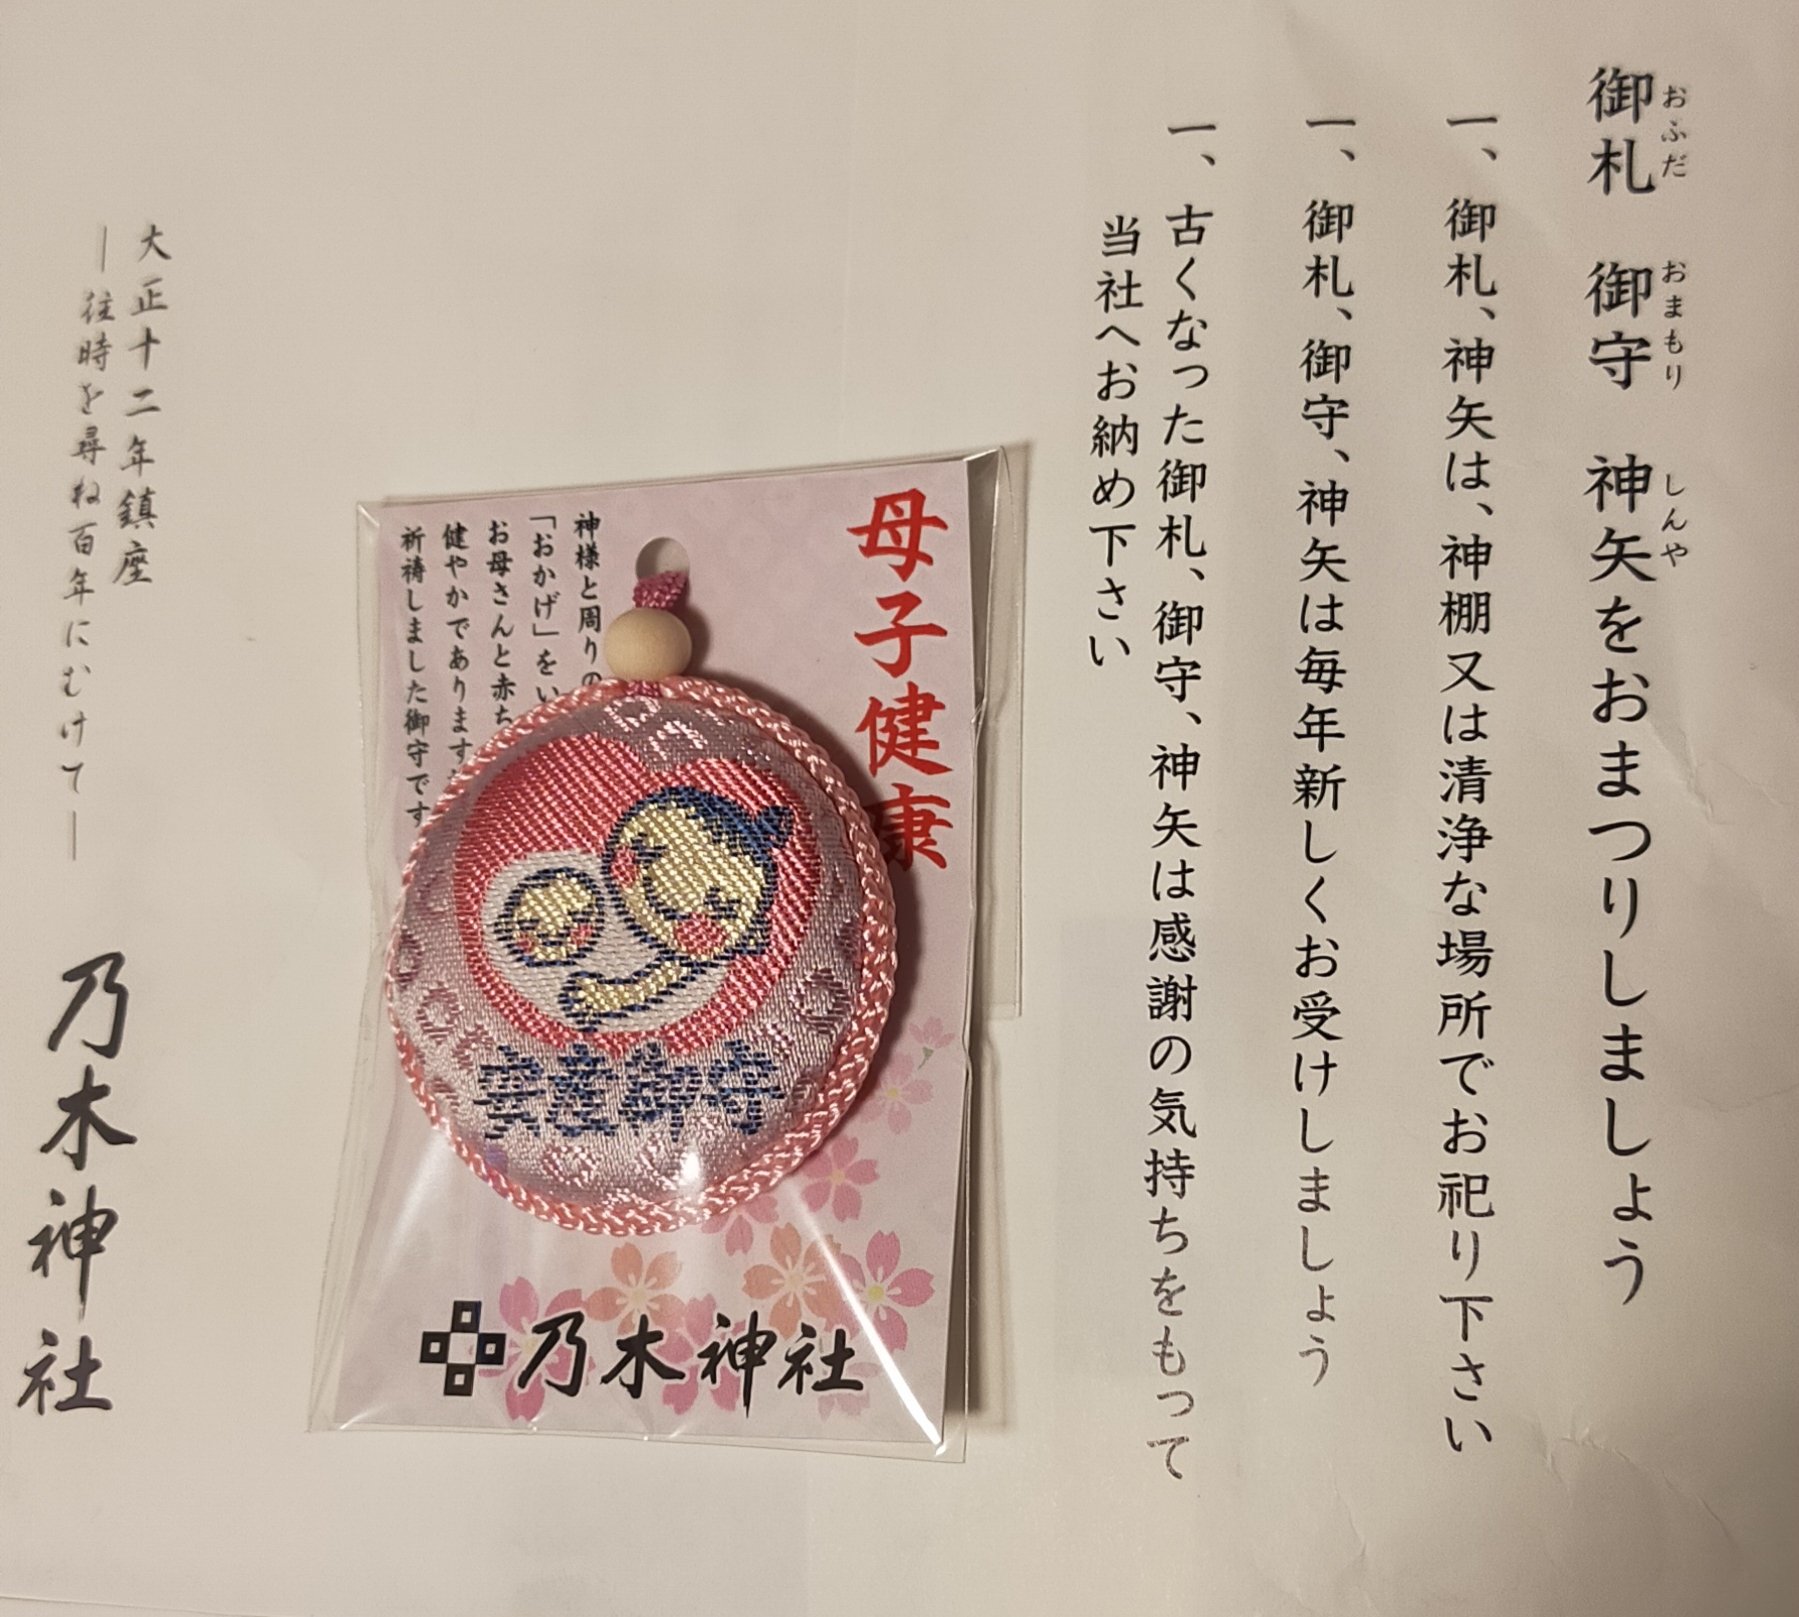 御札 御守 神矢をおまつりしましょう
おふだ おまもり しんや
一、御札、神矢は、神棚又は清浄な場所でお祀り下さい
一、御札、御守、神矢は毎年新しくお受けしましょう
一、古くなった御札、御守、神矢は感謝の気持ちをもって
当社へお納め下さい
母子健康
神様と周りの
「おかげ」をい
お母さんと赤ち
健やかでありますよ
祈祷しました御守です
安産御守
乃木神社
大正十二年鎮座
―往時を尋ね百年にむけて―
乃木神社